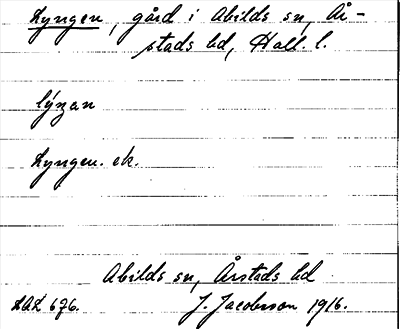 Lyngen, gård i Abilds sn, År-
stads hd, Hall. l.
lýṇan
Lyngen. ek.
Abilds sn, Årstads hd
LAL 676. J. Jacobsson 1916.